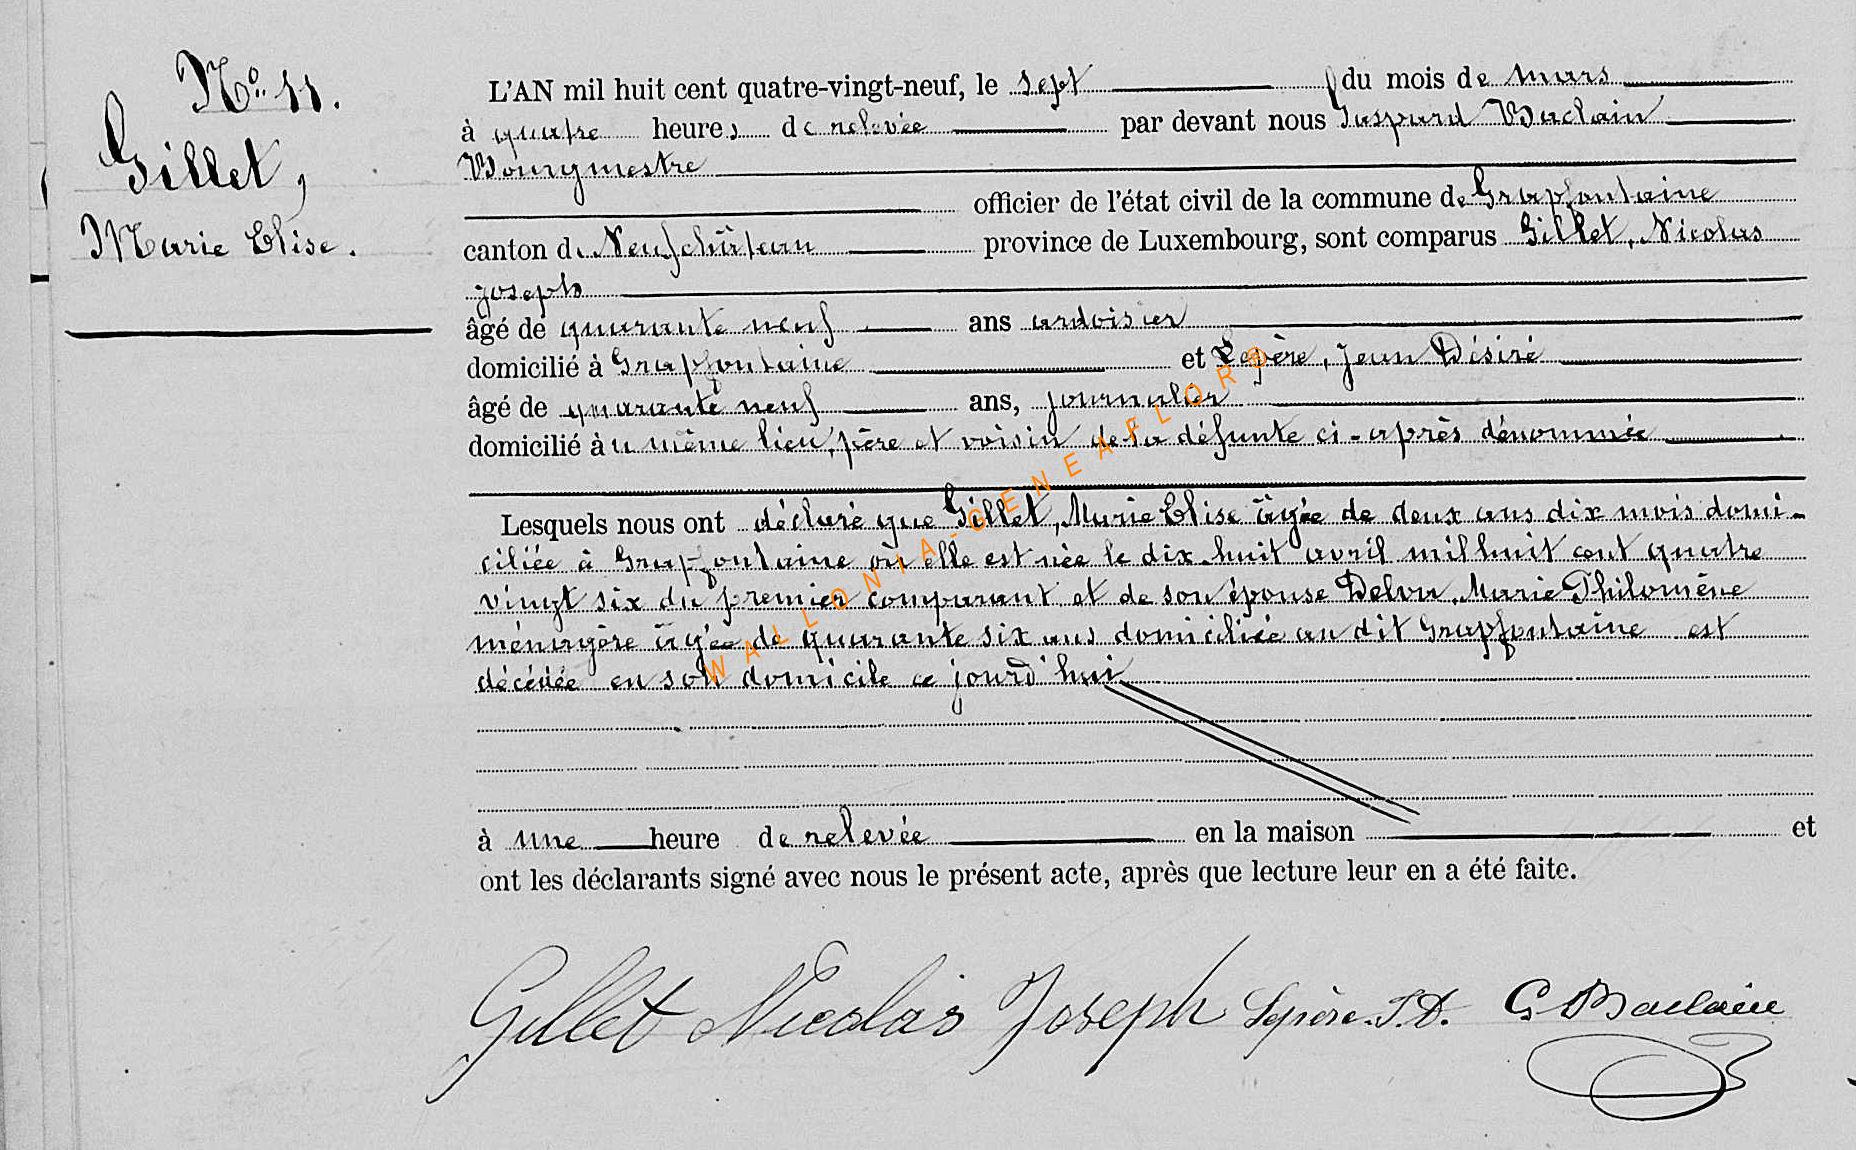 N° 11.
Gillet,
Marie Elise.
L'AN mil huit cent quatre-vingt-neuf, le sept du mois de mars
à quatre heures de relevée par devant nous Gaspard Baclain
Bourgmestre
officier de l'état civil de la commune de Grapfontaine
canton de Neufchâteau province de Luxembourg, sont comparus Gillet, Nicolas
Joseph
âgé de quarante neuf ans ardoisier
domicilié à Grapfontaine et Lepère, Jean Désiré
âgé de quarante neuf ans, journalier
domicilié au même lieu, père et voisin de la défunte ci-après dénommée
Lesquels nous ont déclaré que Gillet, Marie Elise âgée de deux ans dix mois domi-
ciliée à Grapfontaine où elle est née le dix-huit avril mil huit cent quatre
vingt six du premier comparant et de son épouse Delva, Marie Philomène
ménagère âgée de quarante six ans domiciliée au dit Grapfontaine est
décédée en son domicile ce jourd'hui
à une heure de relevée en la maison et
ont les déclarants signé avec nous le présent acte, après que lecture leur en a été faite.
Gillet Nicolas Joseph Lepère. J. D. G Baclain
WALLONIA-GENEAFLORE